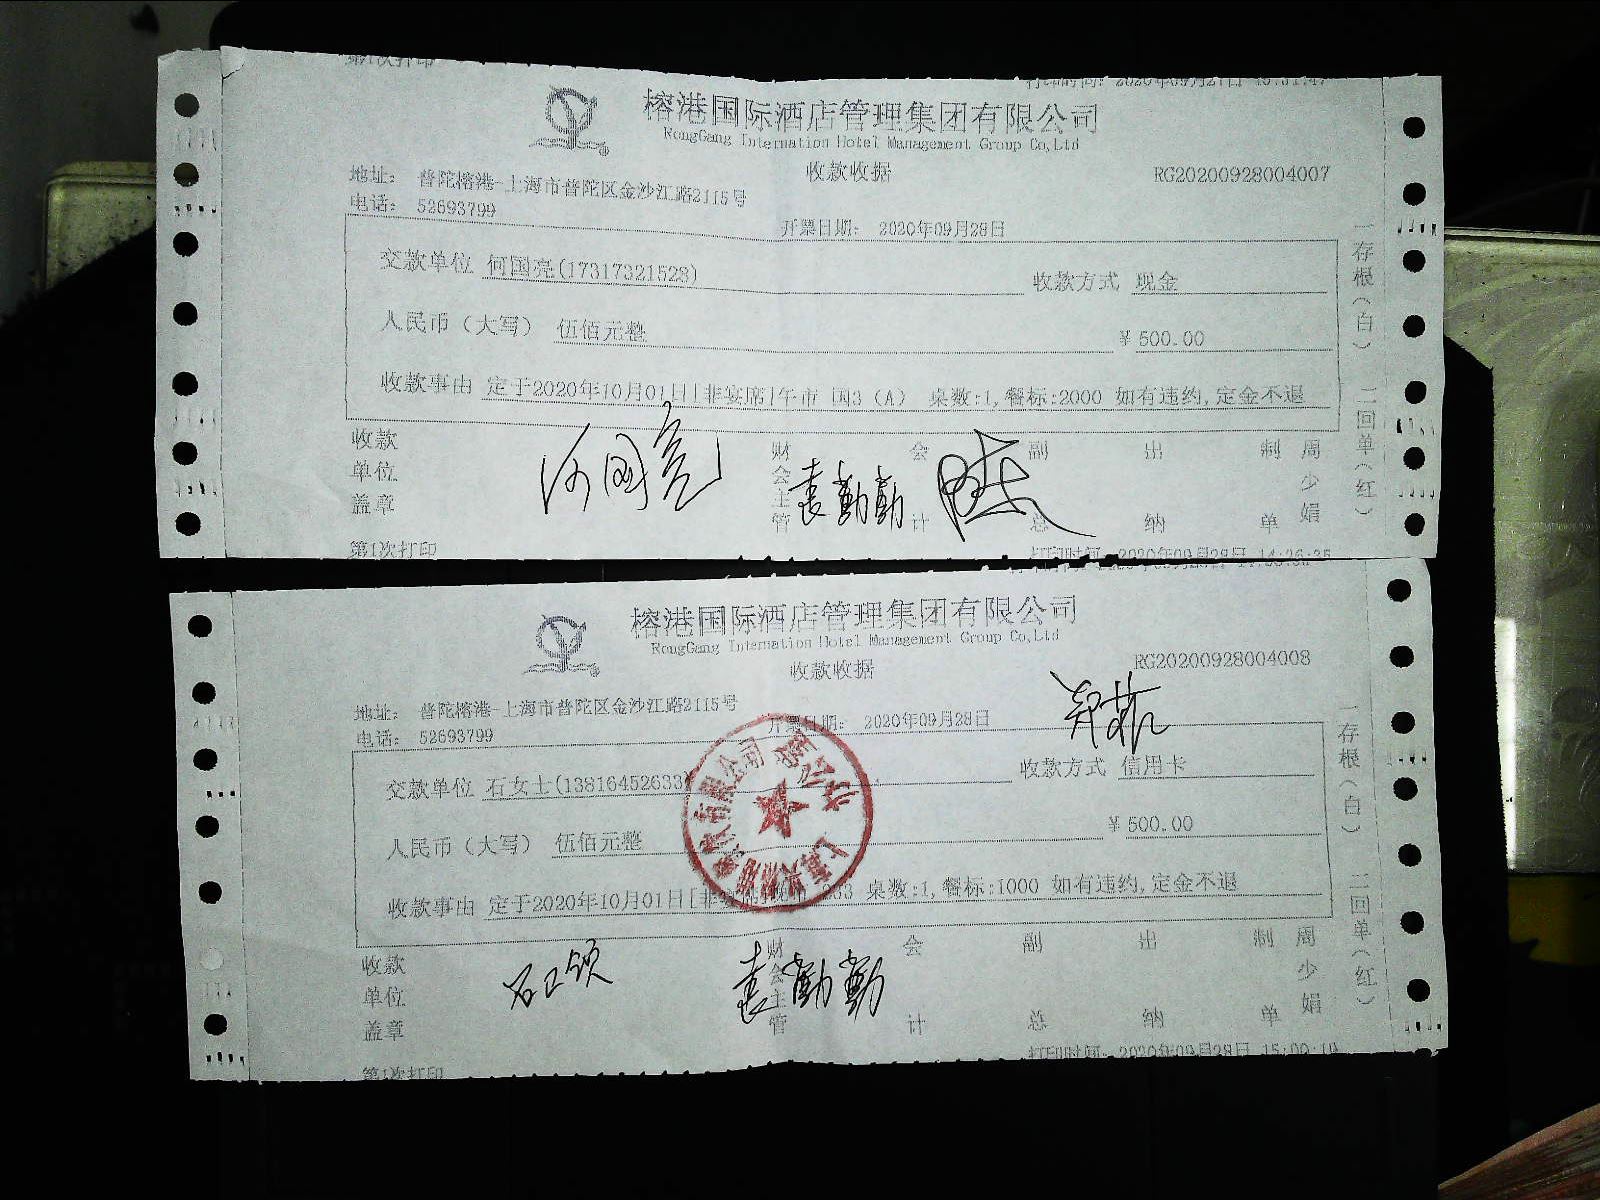 第1次打印
打印时间: 2020年09月27日
榕港国际酒店管理集团有限公司
RongGang Internation Hotel Management Group Co,Ltd
收款收据
RG20200928004007
地址: 普陀榕港-上海市普陀区金沙江路2115号
电话: 52693799
开票日期: 2020年09月28日
交款单位 何国亮(17317321523) 收款方式 现金
人民币(大写) 伍佰元整 ¥500.00
收款事由 定于2020年10月01日[非宴席]午市 国3(A) 桌数:1,餐标:2000 如有违约,定金不退
一存根(白) 二回单(红)
收款单位盖章 何国亮 财会主管 袁勤勤 会计 副总 出纳 制单 周少娟
第1次打印
打印时间: 2020年09月28日 14:26:35
榕港国际酒店管理集团有限公司
RongGang Internation Hotel Management Group Co,Ltd
收款收据
RG20200928004008
地址: 普陀榕港-上海市普陀区金沙江路2115号
电话: 52693799
开票日期: 2020年09月28日
交款单位 石女士(13816452633) 收款方式 信用卡
人民币(大写) 伍佰元整 ¥500.00
收款事由 定于2020年10月01日[非宴席]晚市 桌数:1,餐标:1000 如有违约,定金不退
一存根(白) 二回单(红)
收款单位盖章 财会主管 袁勤勤 会计 副总 出纳 制单 周少娟
第1次打印
打印时间: 2020年09月28日 15:00:19